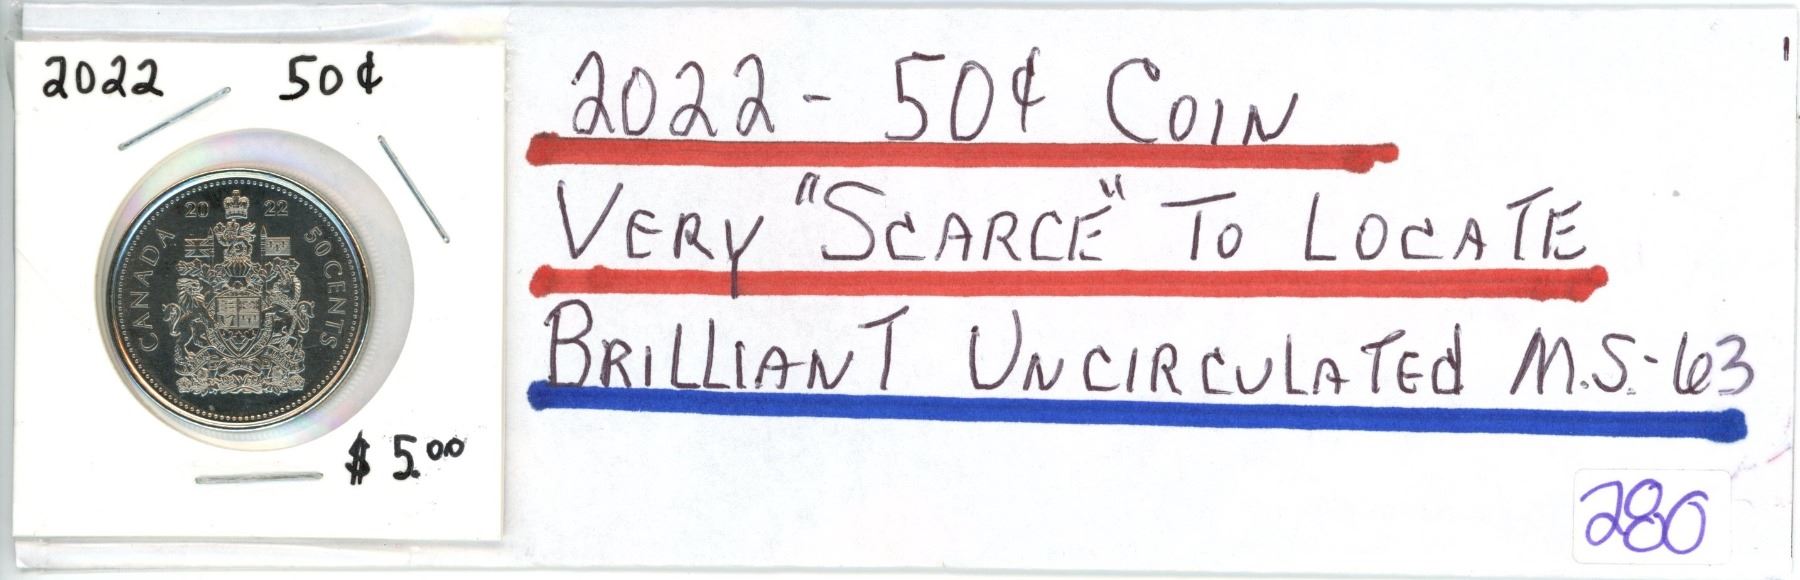 2022 50¢
20 22
CANADA
50 CENTS
$5.00
2022 - 50¢ COIN
VERY "SCARCE" TO LOCATE
BRILLIANT UNCIRCULATED M.S.-63
280